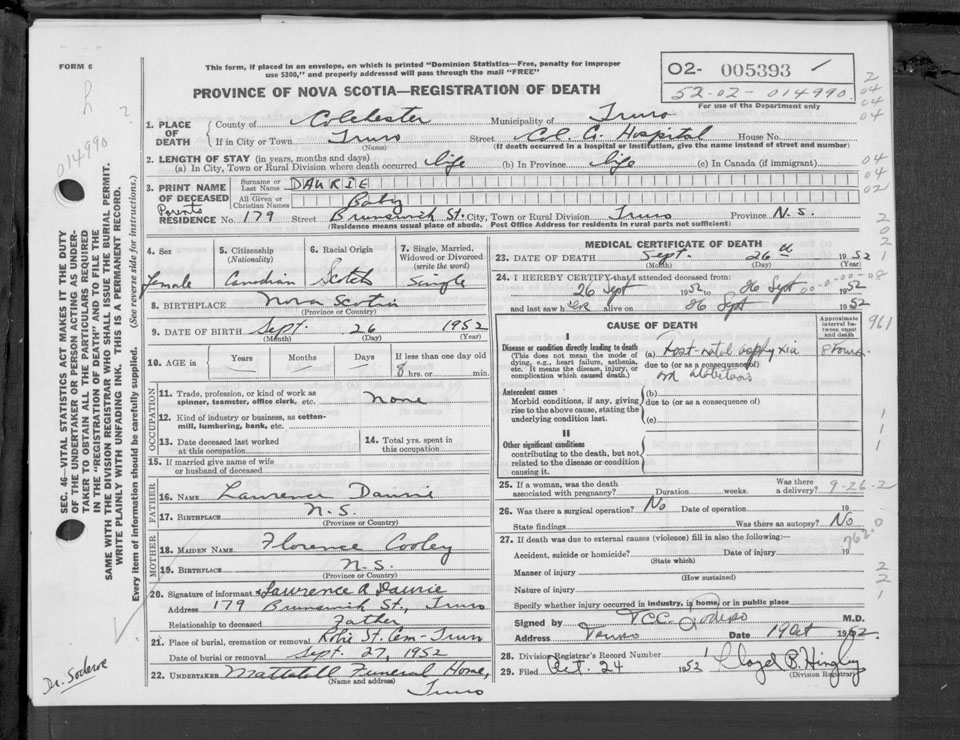 FORM 6
This form, if placed in an envelope, on which is printed "Dominion Statistics—Free, penalty for improper
use $300," and properly addressed will pass through the mail "FREE"
02- 005393
52-02-014990
For use of the Department only
PROVINCE OF NOVA SCOTIA—REGISTRATION OF DEATH
014990
SEC. 46—VITAL STATISTICS ACT MAKES IT THE DUTY
OF THE UNDERTAKER OR PERSON ACTING AS UNDER-
TAKER TO OBTAIN ALL THE PARTICULARS REQUIRED
IN THE "REGISTRATION OF DEATH" AND TO FILE THE
SAME WITH THE DIVISION REGISTRAR WHO SHALL ISSUE THE BURIAL PERMIT.
WRITE PLAINLY WITH UNFADING INK. THIS IS A PERMANENT RECORD.
Every item of information should be carefully supplied. (See reverse side for instructions.)
1. PLACE OF DEATH County of Colchester Municipality of Truro
If in City or Town Truro Street Col. Hospital House No.
(Name) (If death occurred in a hospital or institution, give name instead of street and number)
2. LENGTH OF STAY (in years, months and days)
(a) In City, Town or Rural Division where death occurred life (b) In Province life (c) In Canada (if immigrant)
3. PRINT NAME OF DECEASED Surname or Last Name DAURIE
All Given or Christian Names Baby
Parents
RESIDENCE No. 179 Street Brunswick St. City, Town or Rural Division Truro Province N.S.
(Residence means usual place of abode. Post Office Address for residents in rural parts not sufficient)
4. Sex Female
5. Citizenship (Nationality) Canadian
6. Racial Origin Scotch
7. Single, Married, Widowed or Divorced (write the word) Single
8. BIRTHPLACE Nova Scotia
(Province or Country)
9. DATE OF BIRTH Sept. 26 1952
(Month) (Day) (Year)
10. AGE in Years Months Days If less than one day old
8 hrs. or min.
OCCUPATION
11. Trade, profession, or kind of work as
spinner, teamster, office clerk, etc. None
12. Kind of industry or business, as cotton-
mill, lumbering, bank, etc.
13. Date deceased last worked
at this occupation
14. Total yrs. spent in
this occupation
15. If married give name of wife
or husband of deceased
FATHER
16. NAME Lawrence Daurie
17. BIRTHPLACE N.S.
(Province or Country)
MOTHER
18. MAIDEN NAME Florence Cooley
19. BIRTHPLACE N.S.
(Province or Country)
20. Signature of informant Lawrence A Daurie
Address 179 Brunswick St., Truro
Relationship to deceased Father
21. Place of burial, cremation or removal Robie St. Cem - Truro
Date of burial or removal Sept. 27, 1952
22. UNDERTAKER Mattatall Funeral Home,
(Name and address) Truro
MEDICAL CERTIFICATE OF DEATH
23. DATE OF DEATH Sept. 26th 1952
(Month) (Day) (Year)
24. I HEREBY CERTIFY that I attended deceased from:
26 Sept 1952 to 26 Sept 1952
and last saw her alive on 26 Sept 1952
CAUSE OF DEATH
Approximate interval between onset and death
I
Disease or condition directly leading to death
(This does not mean the mode of
dying, e.g., heart failure, asthenia,
etc. It means the disease, injury, or
complication which caused death.)
(a) Post-natal asphyxia 8 hours
due to (or as a consequence of)
Antecedent causes
Morbid conditions, if any, giving
rise to the above cause, stating the
underlying condition last.
(b)
due to (or as a consequence of)
(c)
II
Other significant conditions
contributing to the death, but not
related to the disease or condition
causing it.
25. If a woman, was the death
associated with pregnancy? Duration weeks. Was there
a delivery? 9-26-2
26. Was there a surgical operation? No Date of operation 19
State findings Was there an autopsy? No
27. If death was due to external causes (violence) fill in also the following:—
Accident, suicide or homicide? Date of injury 19
(State which)
Manner of injury
(How sustained)
Nature of injury
Specify whether injury occurred in industry, in home, or in public place
Signed by M.D.
Address Truro Date 1 Oct 1952
28. Division Registrar's Record Number
29. Filed Oct. 24 1952 Lloyd B. Hingley
(Division Registrar)
961
762.0